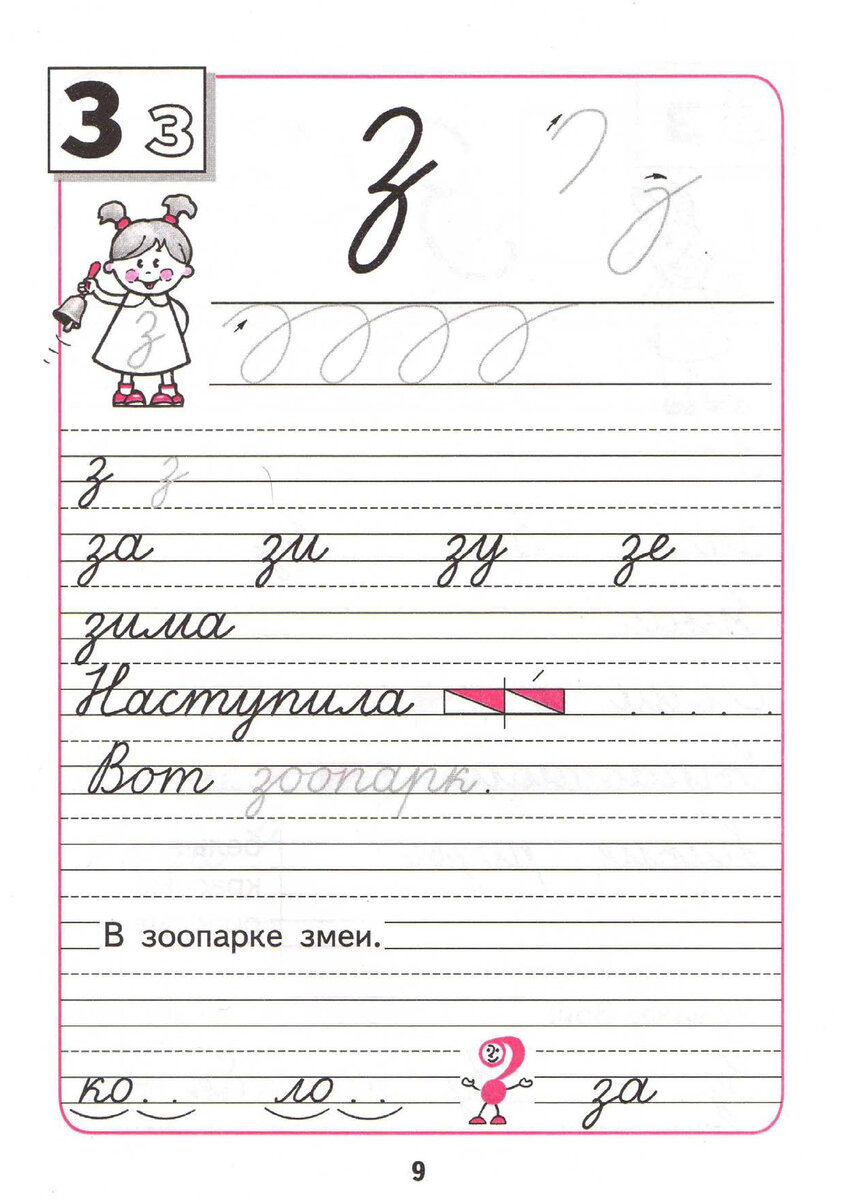 З з
з
з з
з
з з
за зи зу зе
зима
Наступила . . . . .
Вот зоопарк.
В зоопарке змеи.
ко . . ло . . ? за
9